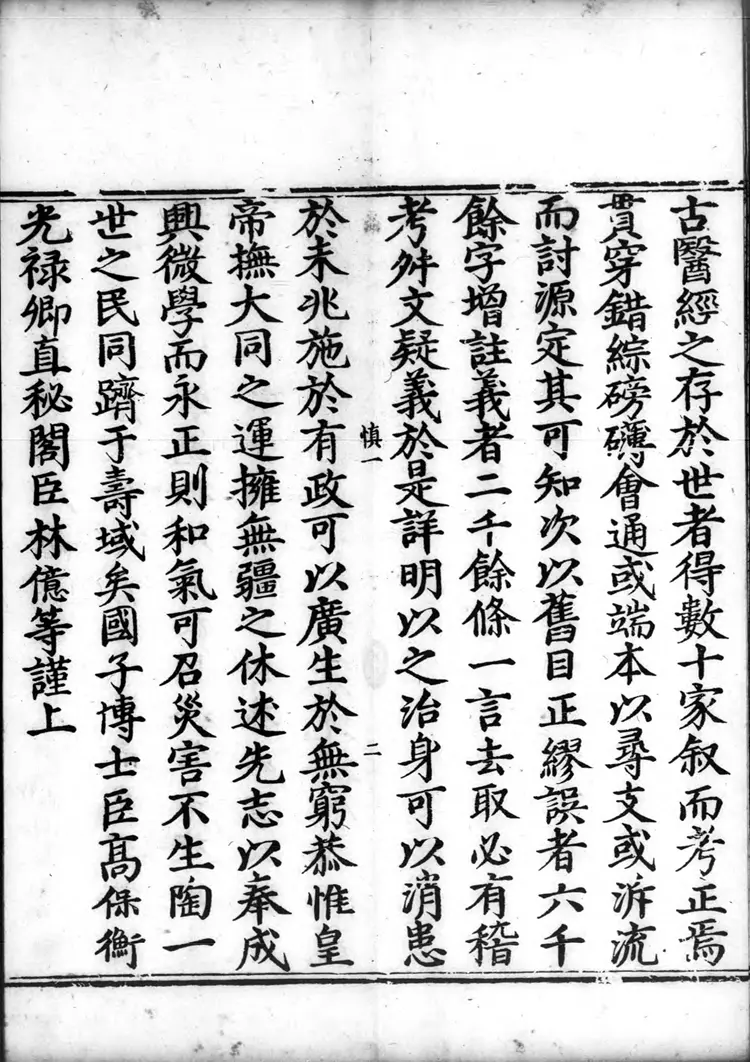 古醫經之存於世者得數十家叙而考正焉
貫穿錯綜磅礴會通或端本以尋支或泝流
而討源定其可知次以舊目正繆誤者六千
餘字增註義者二千餘條一言去取必有稽
考舛文疑義於是詳明以之治身可以消患
慎一
二
於未兆施於有政可以廣生於無窮恭惟皇
帝撫大同之運擁無疆之休述先志以奉成
興微學而永正則和氣可召災害不生陶一
世之民同躋于壽域矣國子博士臣高保衡
光禄卿直秘閣臣林億等謹上